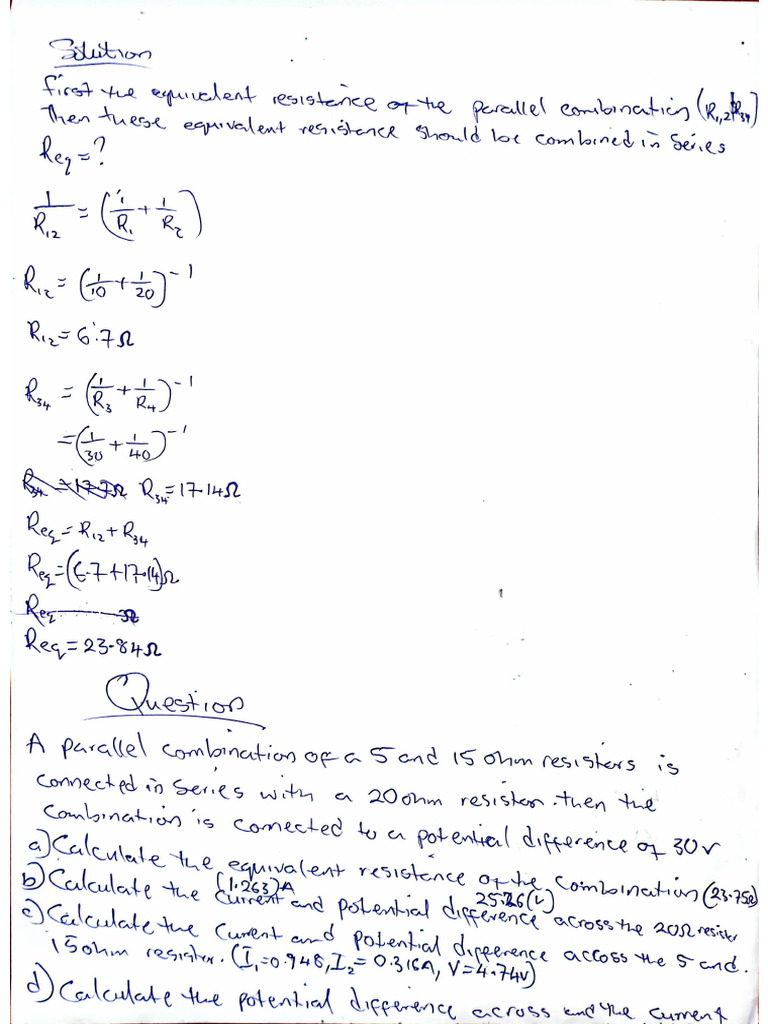 Solution
first the equivalent resistance of the parallel combination (R1,2 R34)
Then these equivalent resistance should be combined in series
Req = ?
1/R12 = (1/R1 + 1/R2)
R12 = (1/10 + 1/20)^-1
R12 = 6.7Ω
R34 = (1/R3 + 1/R4)^-1
= (1/30 + 1/40)^-1
R34 = 17.14Ω
Req = R12 + R34
Req = (6.7+17.14)Ω
Req Ω
Req = 23.84Ω
Question
A parallel combination of a 5 and 15 ohm resistors is
connected in series with a 20 ohm resistor. then the
combination is connected to a potential difference of 30v
a) Calculate the equivalent resistance of the combination (23.75Ω)
(1.263)A 25.26(v)
b) Calculate the current and potential difference across the 20Ω resistor
c) Calculate the current and potential difference accoss the 5 and
15 ohm resistor. (I1=0.948, I2= 0.316A, V=4.74v)
d) Calculate the potential difference across and the current